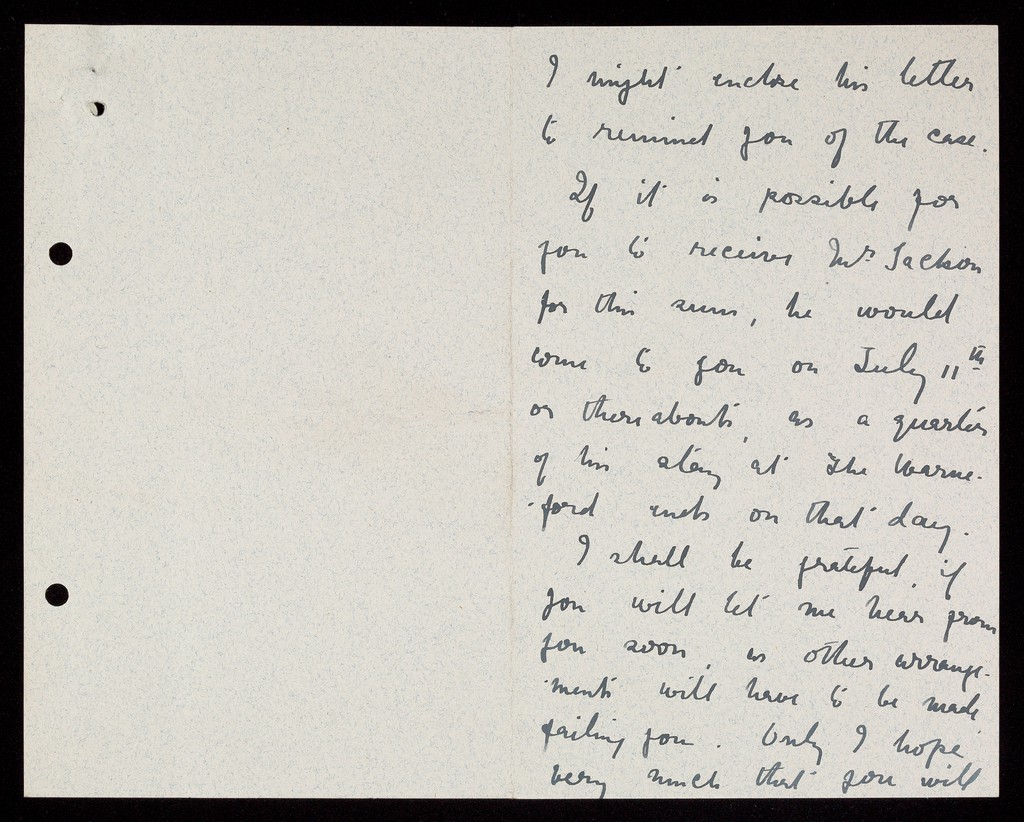 I might enclose his letter
to remind you of the case.
If it is possible for
you to receive Mr Jackson
for this sum, he would
come to you on July 11th
or thereabouts, as a quarter
of his stay at The Warne-
-ford ends on that day.
I shall be grateful, if
you will let me hear from
you soon, as other arrange-
-ments will have to be made
failing you. Only I hope
very much that you will